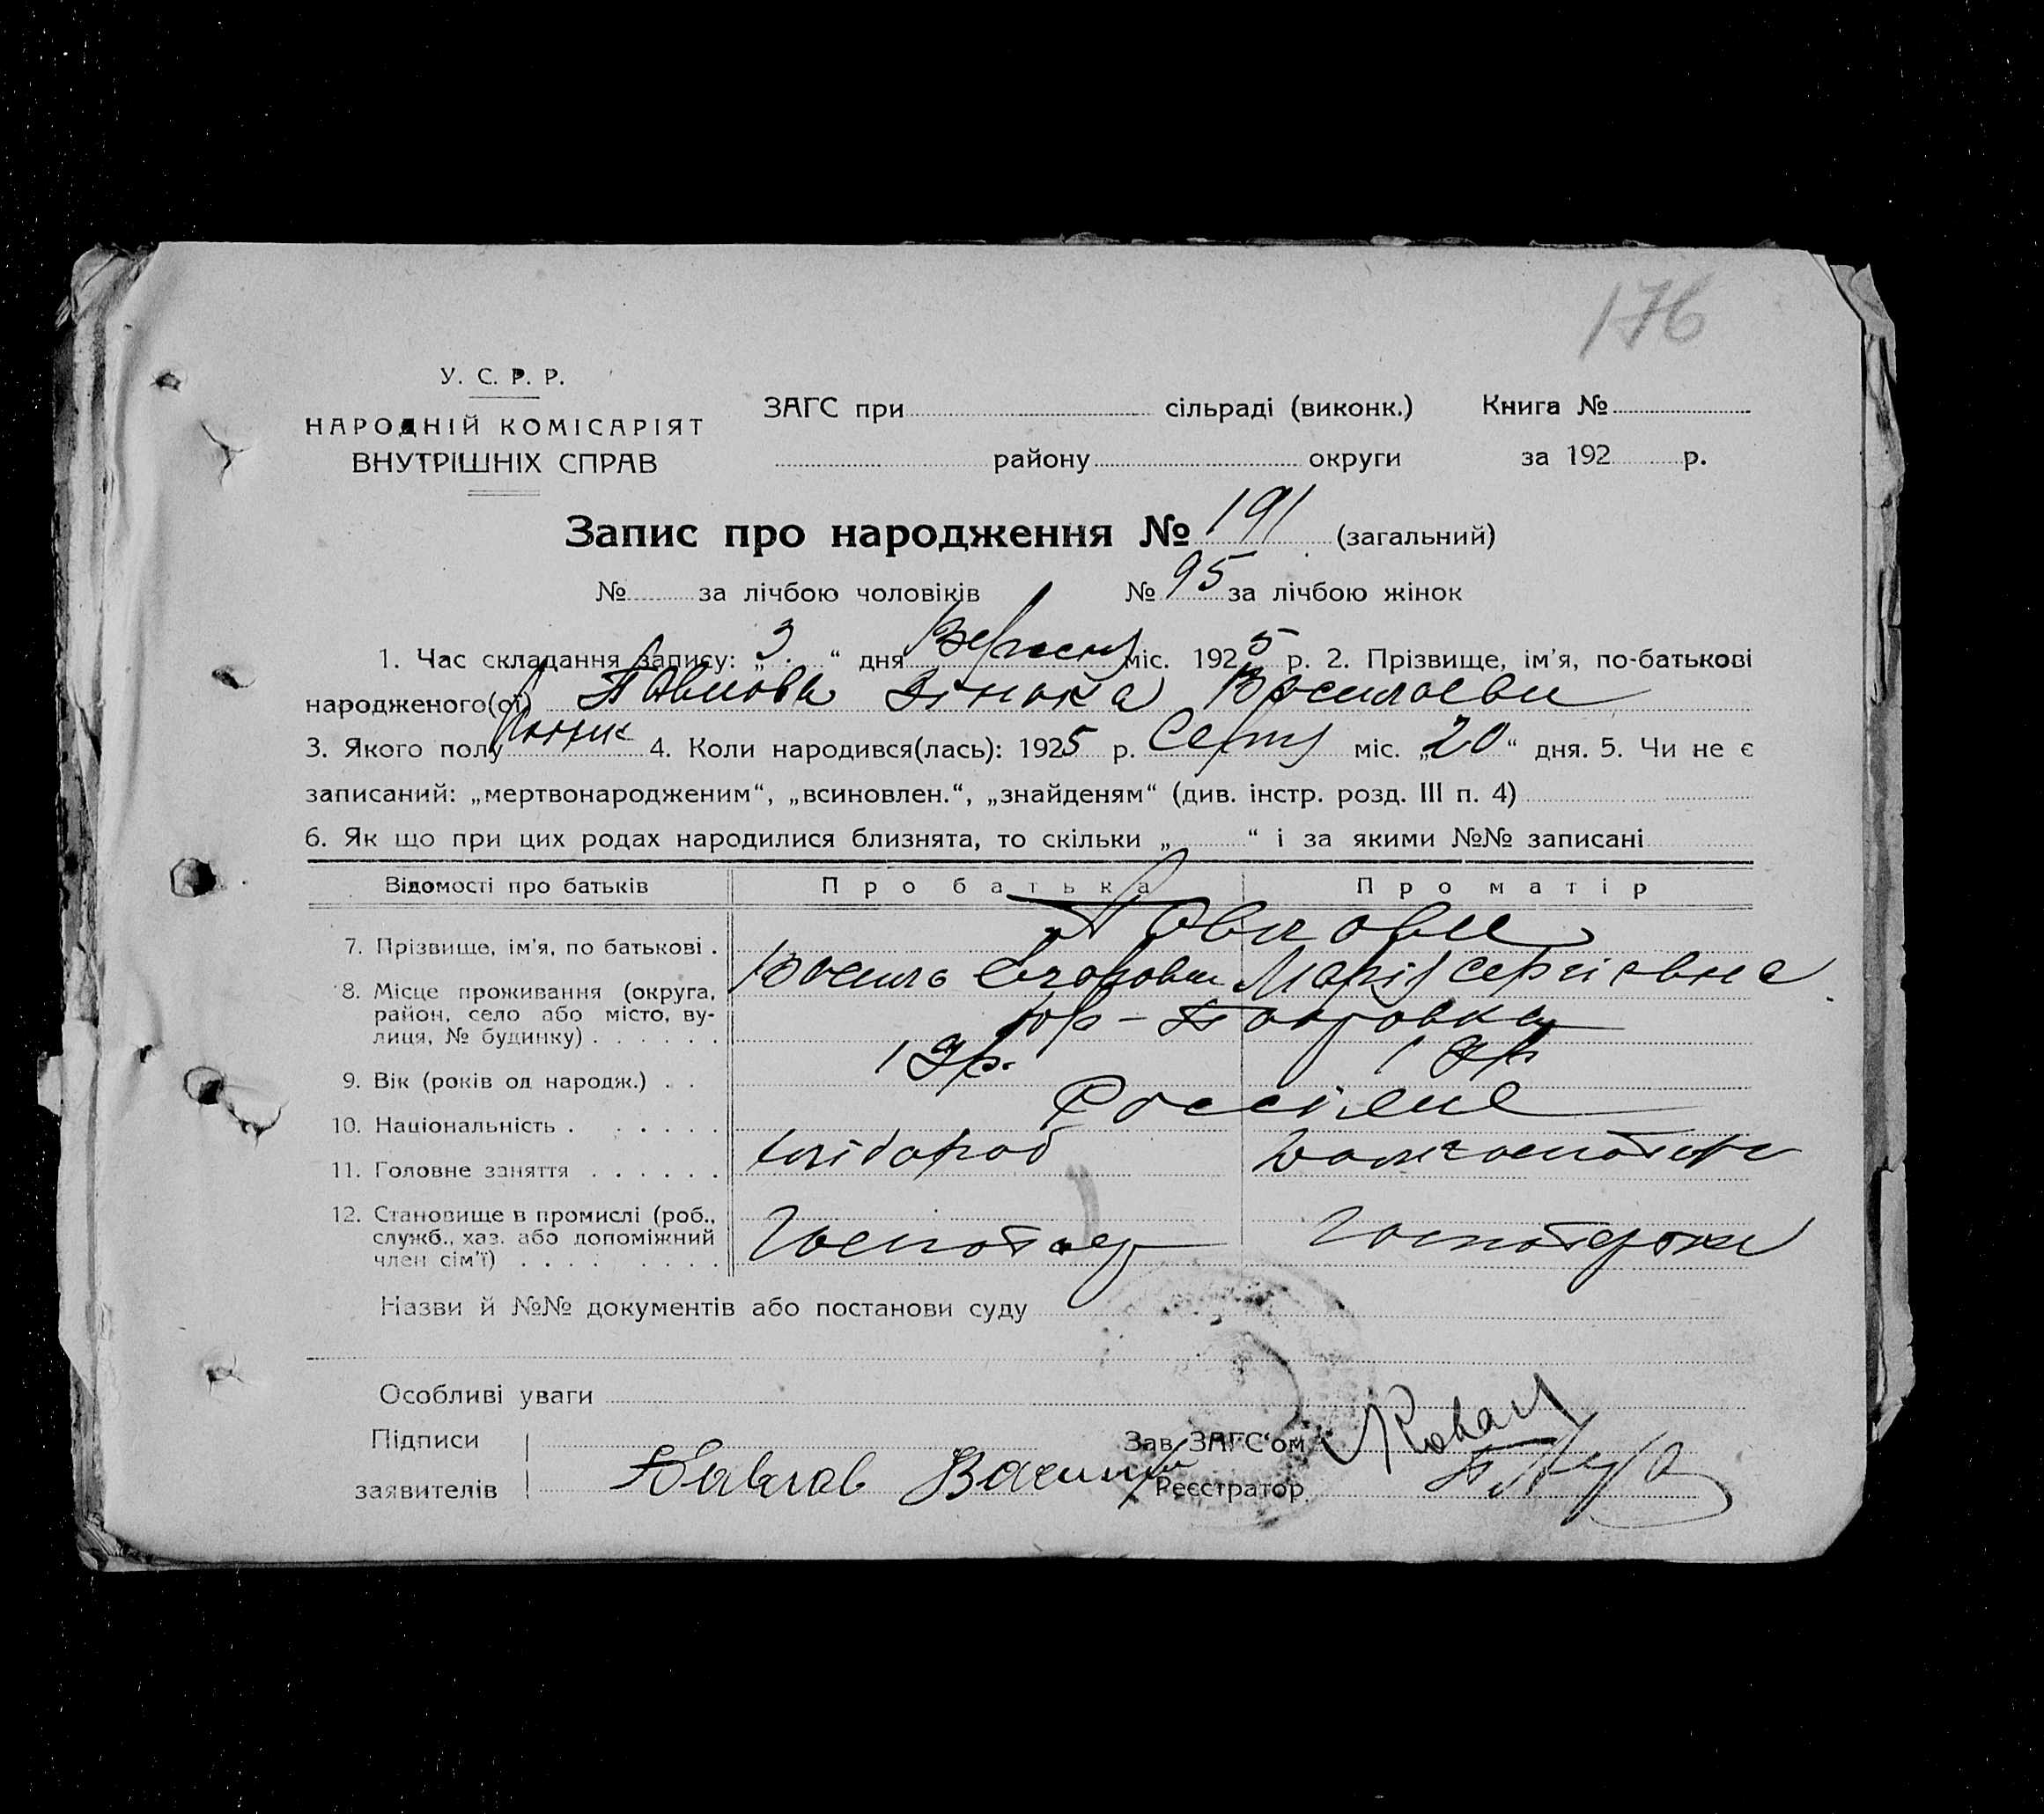 176
У. С. Р. Р.
НАРОДНІЙ КОМІСАРІЯТ
ВНУТРІШНІХ СПРАВ
ЗАГС при сільраді (виконк.) Книга №
району округи за 192 р.
Запис про народження № 191 (загальний)
№ за лічбою чоловіків № 95 за лічбою жінок
1. Час складання запису: „3“ дня Вересня міс. 1925 р. 2. Прізвище, ім'я, по-батькові
народженого(ої) Павлова
3. Якого полу 4. Коли народився(лась): 1925 р. Серпня міс. „20“ дня. 5. Чи не є
записаний: „мертвонародженим“, „всиновлен.“, „знайденям“ (див. інстр. розд. III п. 4)
6. Як що при цих родах народилися близнята, то скільки „ “ і за якими №№ записані
Відомості про батьків Про батька Про матір
7. Прізвище, ім'я, по батькові . Павлови
Василь Єгорович Марія Сергієвна
8. Місце проживання (округа,
район, село або місто, ву-
лиця, № будинку) . . . . . .
9. Вік (років од народж.) . .
10. Національність . . . . . . Россіяне
11. Головне заняття . . . . . . хлібороб домгосподарка
12. Становище в промислі (роб.,
служб., хаз. або допоміжний
член сім'ї) . . . . . . . . Господар Господарка
Назви й №№ документів або постанови суду
Особливі уваги
Підписи
заявителів Павлов Василий
Зав. ЗАГС'ом
Реєстратор